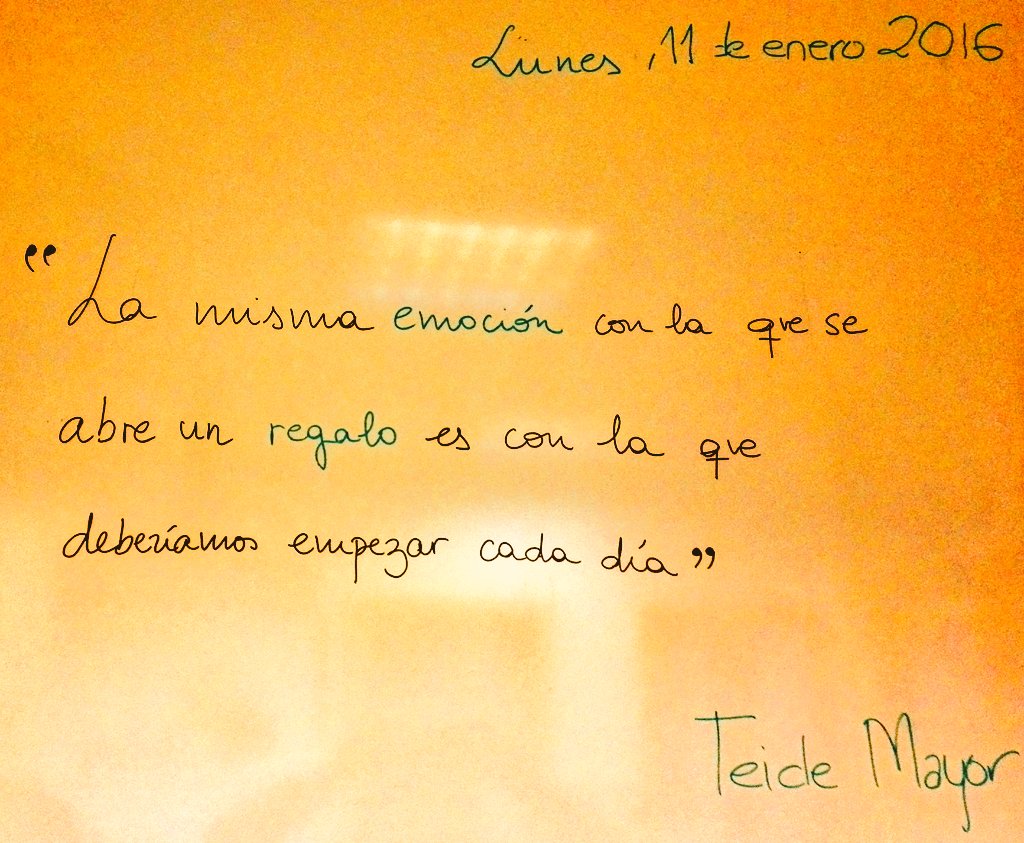 Lunes, 11 de enero 2016
“La misma emoción con la que se
abre un regalo es con la que
deberíamos empezar cada día”
Teide Mayor